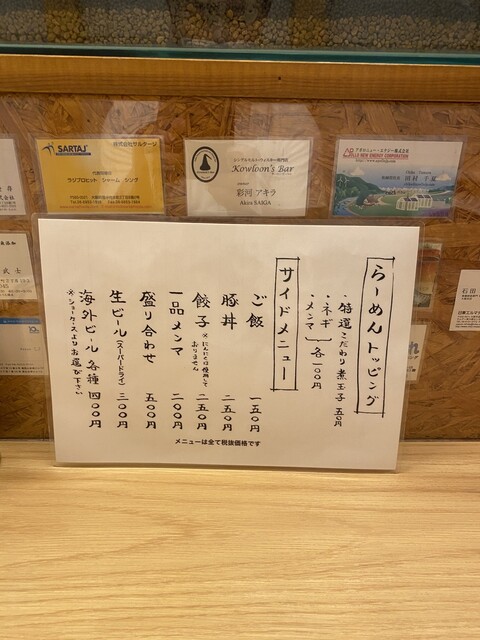 株式会社サルタージ
SARTAJ
代表取締役
ラジプロヒット シャーム シング
シングルモルト・ウィスキー専門店
Kowloon's Bar
owner
彩河 アキラ
Akira SAIGA
アポロニュー・エナジー株式会社
田村 千夏
らーめんトッピング
・特選こだわり煮玉子 五〇円
・ネギ
・メンマ 各一〇〇円
サイドメニュー
ご飯 一五〇円
豚丼 二五〇円
餃子 ※にんにくは使用しておりません 二五〇円
一品メンマ 二〇〇円
盛り合わせ 五〇〇円
生ビール(スーパードライ) 三〇〇円
海外ビール各種 四〇〇円
※ショーケースよりお選び下さい
メニューは全て税抜価格です